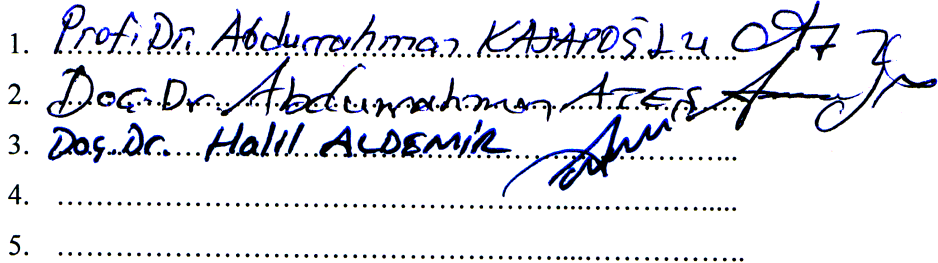 1. Prof. Dr. Abdurrahman KASAPOĞLU
2. Doç. Dr. Abdurrahman ATEŞ
3. Doç. Dr. Halil ALDEMİR
4. ........................................................
5. ........................................................